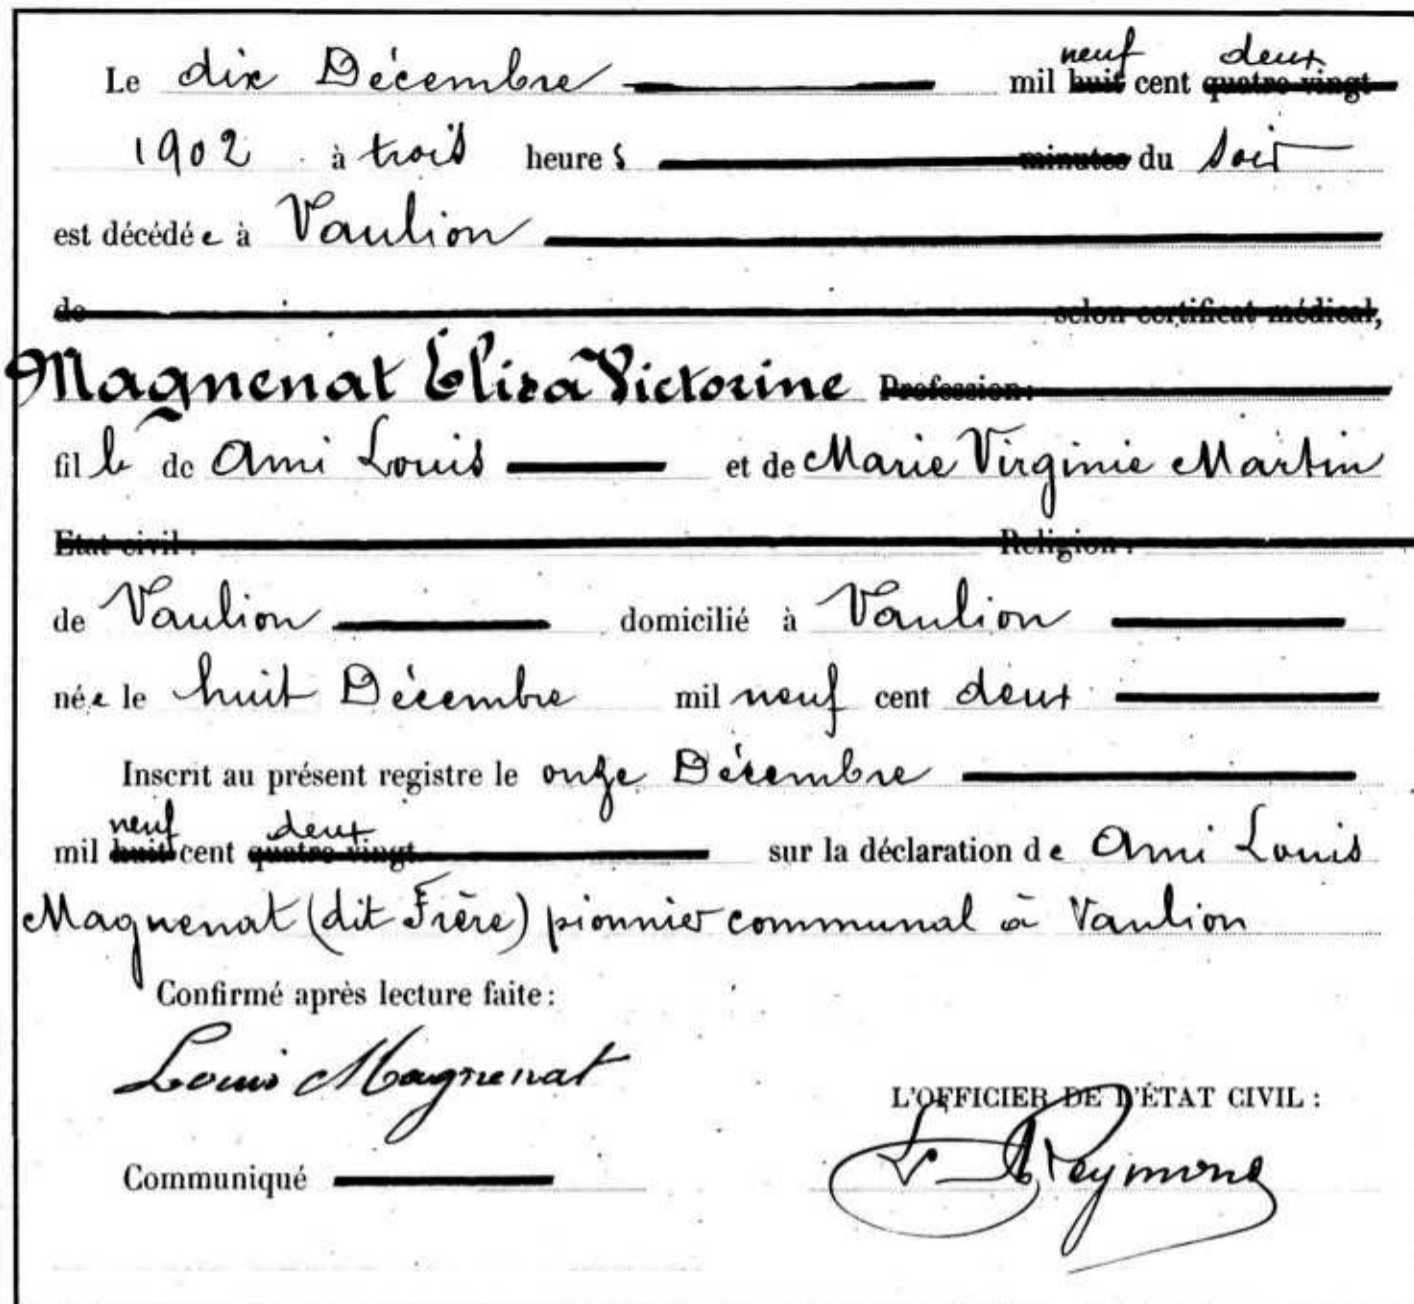 neuf deux
Le dix Décembre mil huit cent quatre-vingt
1902 à trois heures minutes du soir
est décédée à Vaulion
de selon certificat médical,
Magnenat Eliza Victorine Profession:
fille de Ami Louis et de Marie Virginie Martin
Etat civil: Religion:
de Vaulion domicilié à Vaulion
née le huit Décembre mil neuf cent deux
Inscrit au présent registre le onze Décembre
neuf deux
mil huit cent quatre-vingt sur la déclaration de Ami Louis
Magnenat (dit Frère) pionnier communal à Vaulion
Confirmé après lecture faite:
Louis Magnenat
L'OFFICIER DE L'ÉTAT CIVIL:
Communiqué
Reymond